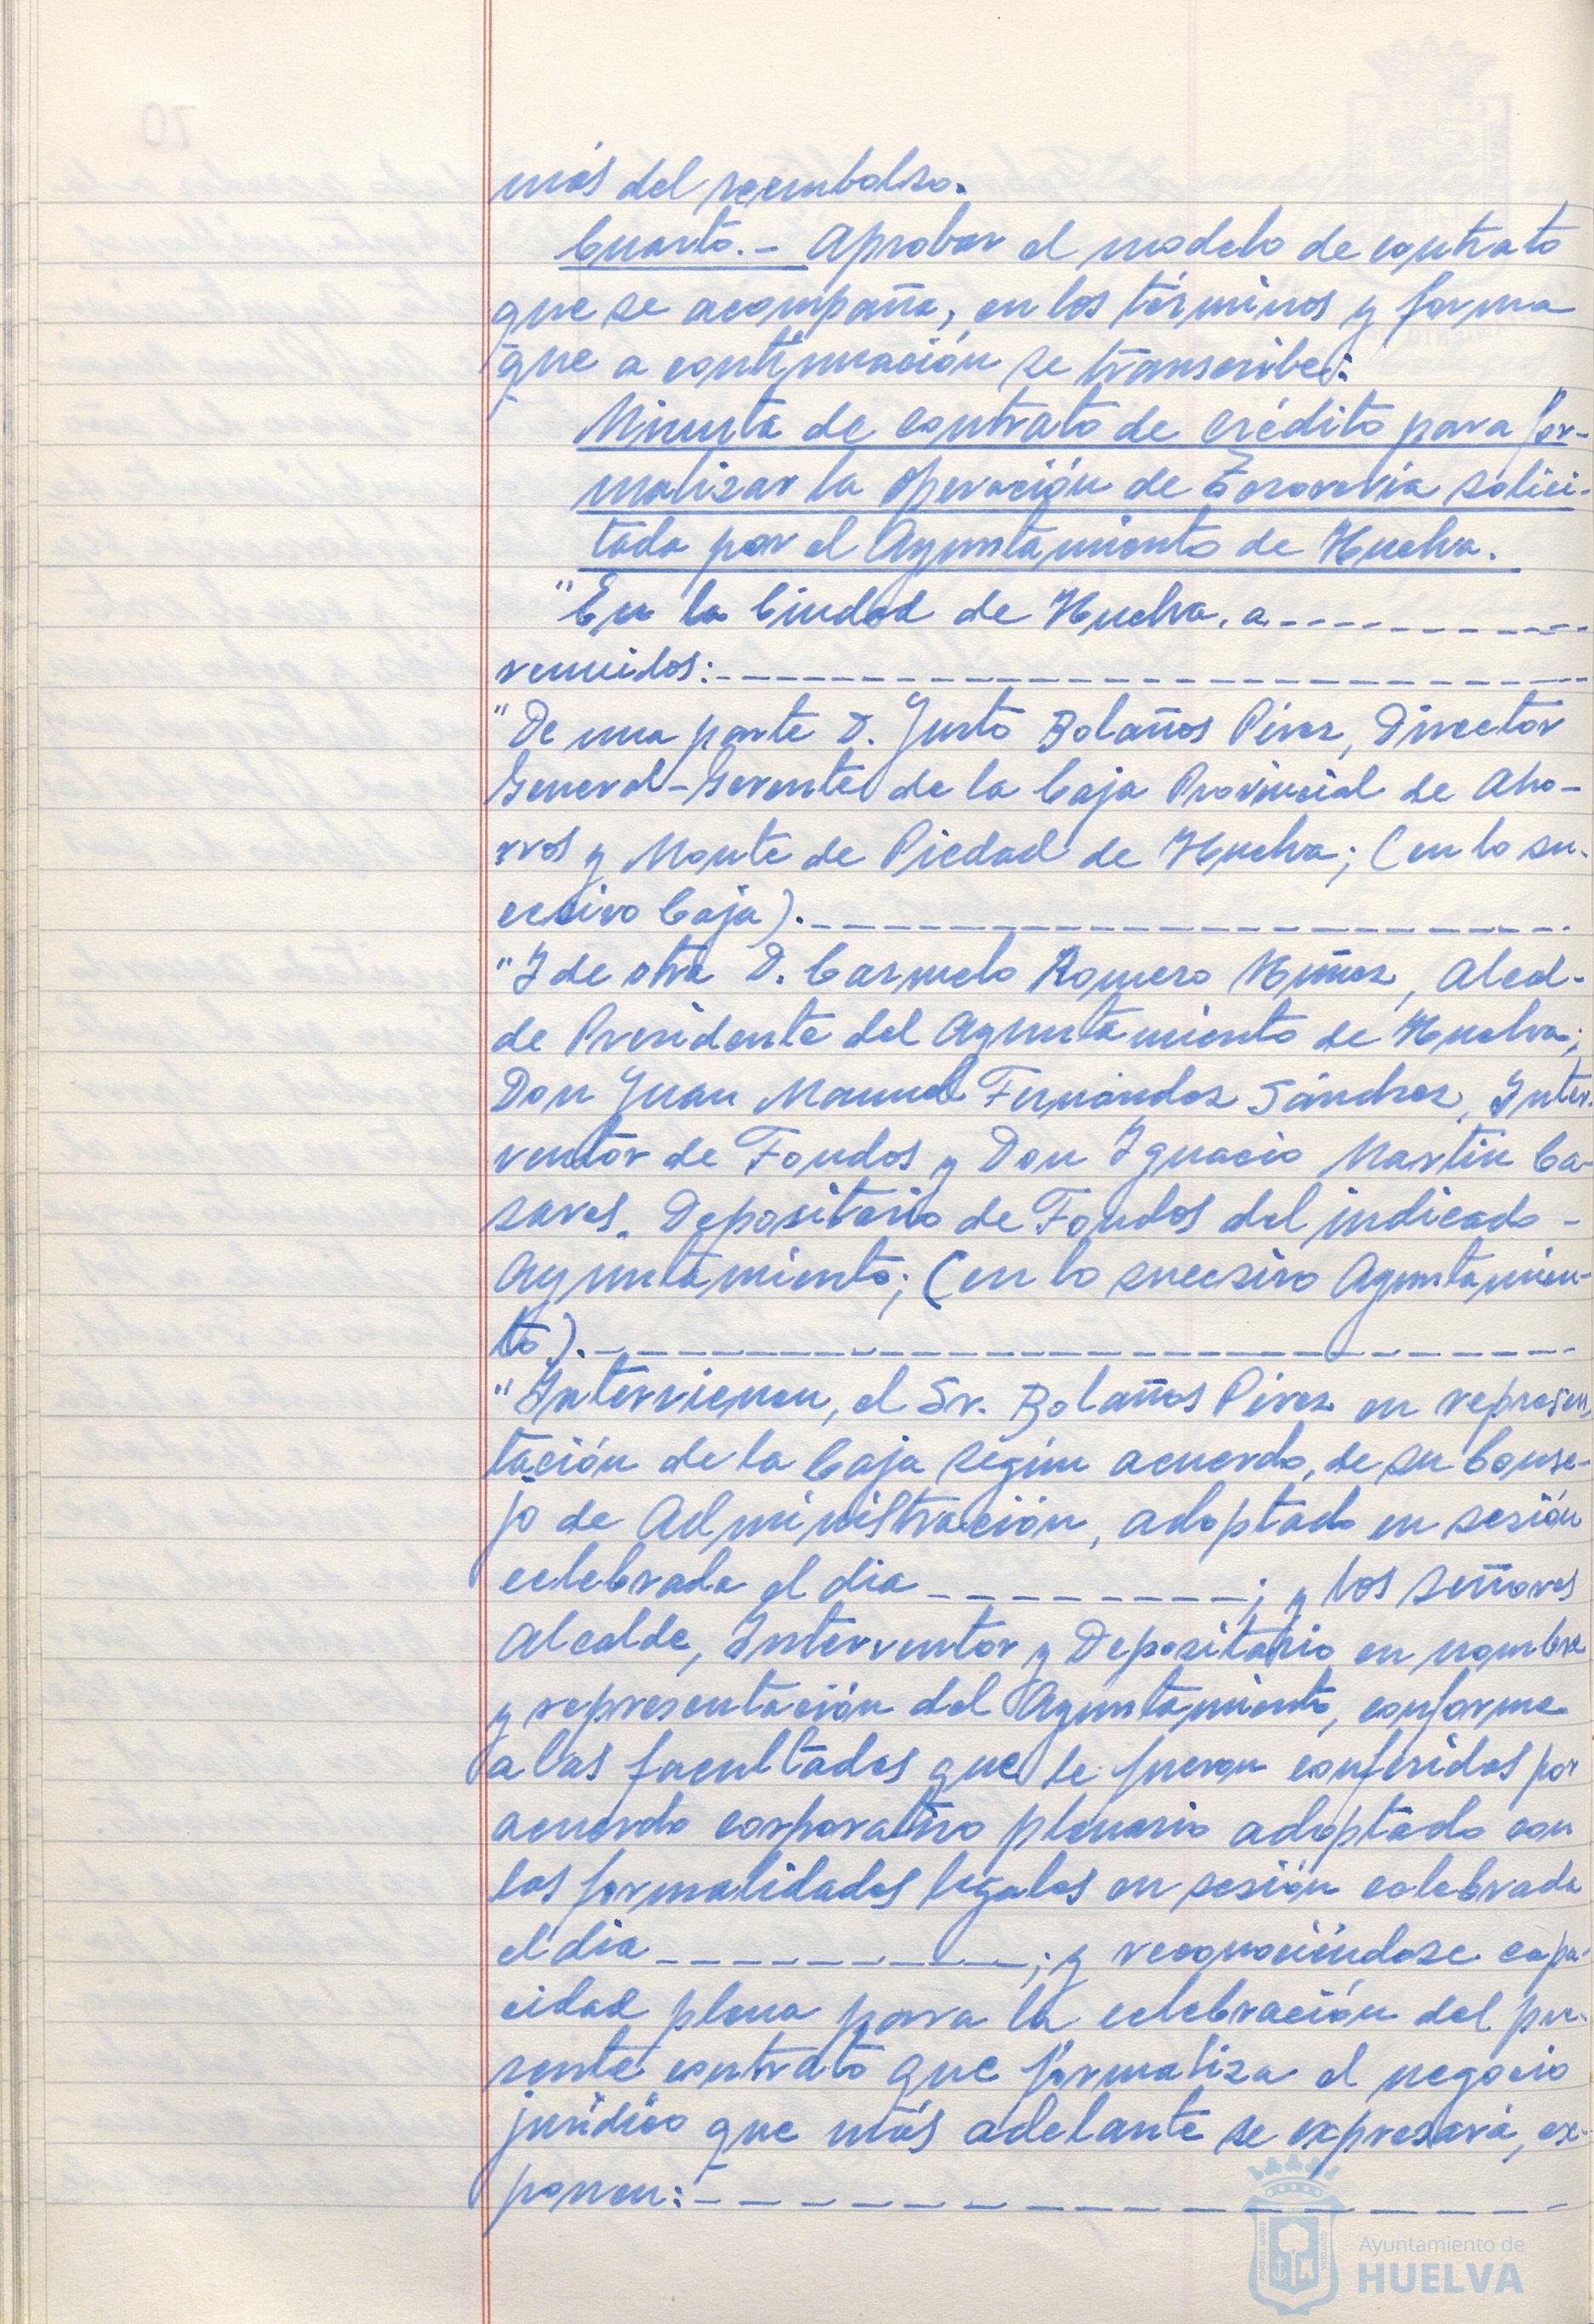 más del reembolso.
Cuarto.- Aprobar el modelo de contrato
que se acompaña, en los términos y forma
que a continuación se transcribe:
Minuta de contrato de crédito para for-
malizar la operación de Tesorería solici-
tada por el Ayuntamiento de Huelva.
"En la Ciudad de Huelva, a ----------
reunidos: ----------
"De una parte D. Justo Bolaños Pérez, Director
General-Gerente de la Caja Provincial de Aho-
rros y Monte de Piedad de Huelva; (en lo su-
cesivo Caja). ----------
"Y de otra D. Carmelo Romero Núñez, Alcal-
de Presidente del Ayuntamiento de Huelva;
Don Juan Manuel Fernández Sánchez, Inter-
ventor de Fondos y Don Ignacio Martin Ca-
sares, Depositario de Fondos del indicado -
Ayuntamiento; (en lo sucesivo Ayuntamien-
to). ----------
"Intervienen, el Sr. Bolaños Pérez en represen-
tación de la Caja según acuerdo, de su Conse-
jo de Administración, adoptado en sesión
celebrada el dia ----------; y los señores
Alcalde, Interventor y Depositario en nombre
y representación del Ayuntamiento, conforme
a las facultades que le fueron conferidas por
acuerdo corporativo plenario adoptado con
las formalidades legales en sesión celebrada
el dia ----------; y reconociéndose capa-
cidad plena para la celebración del pre-
sente contrato que formaliza el negocio
jurídico que más adelante se expresará, ex-
ponen: ----------
Ayuntamiento de
HUELVA